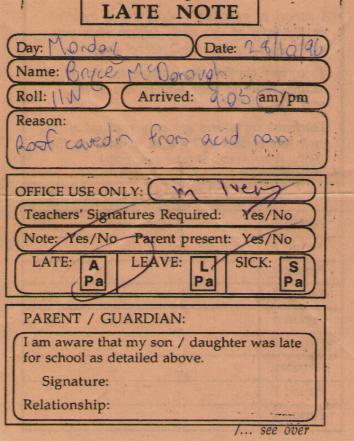 LATE NOTE
Day: Monday Date: 28/10/96
Name: Bryce McDonough
Roll: 11W Arrived: 9:05 am/pm
Reason:
Roof caved in from acid rain
OFFICE USE ONLY: M
Teachers' Signatures Required: Yes/No
Note: Yes/No Parent present: Yes/No
LATE: A Pa LEAVE: L Pa SICK: S Pa
PARENT / GUARDIAN:
I am aware that my son / daughter was late
for school as detailed above.
Signature:
Relationship:
/... see over